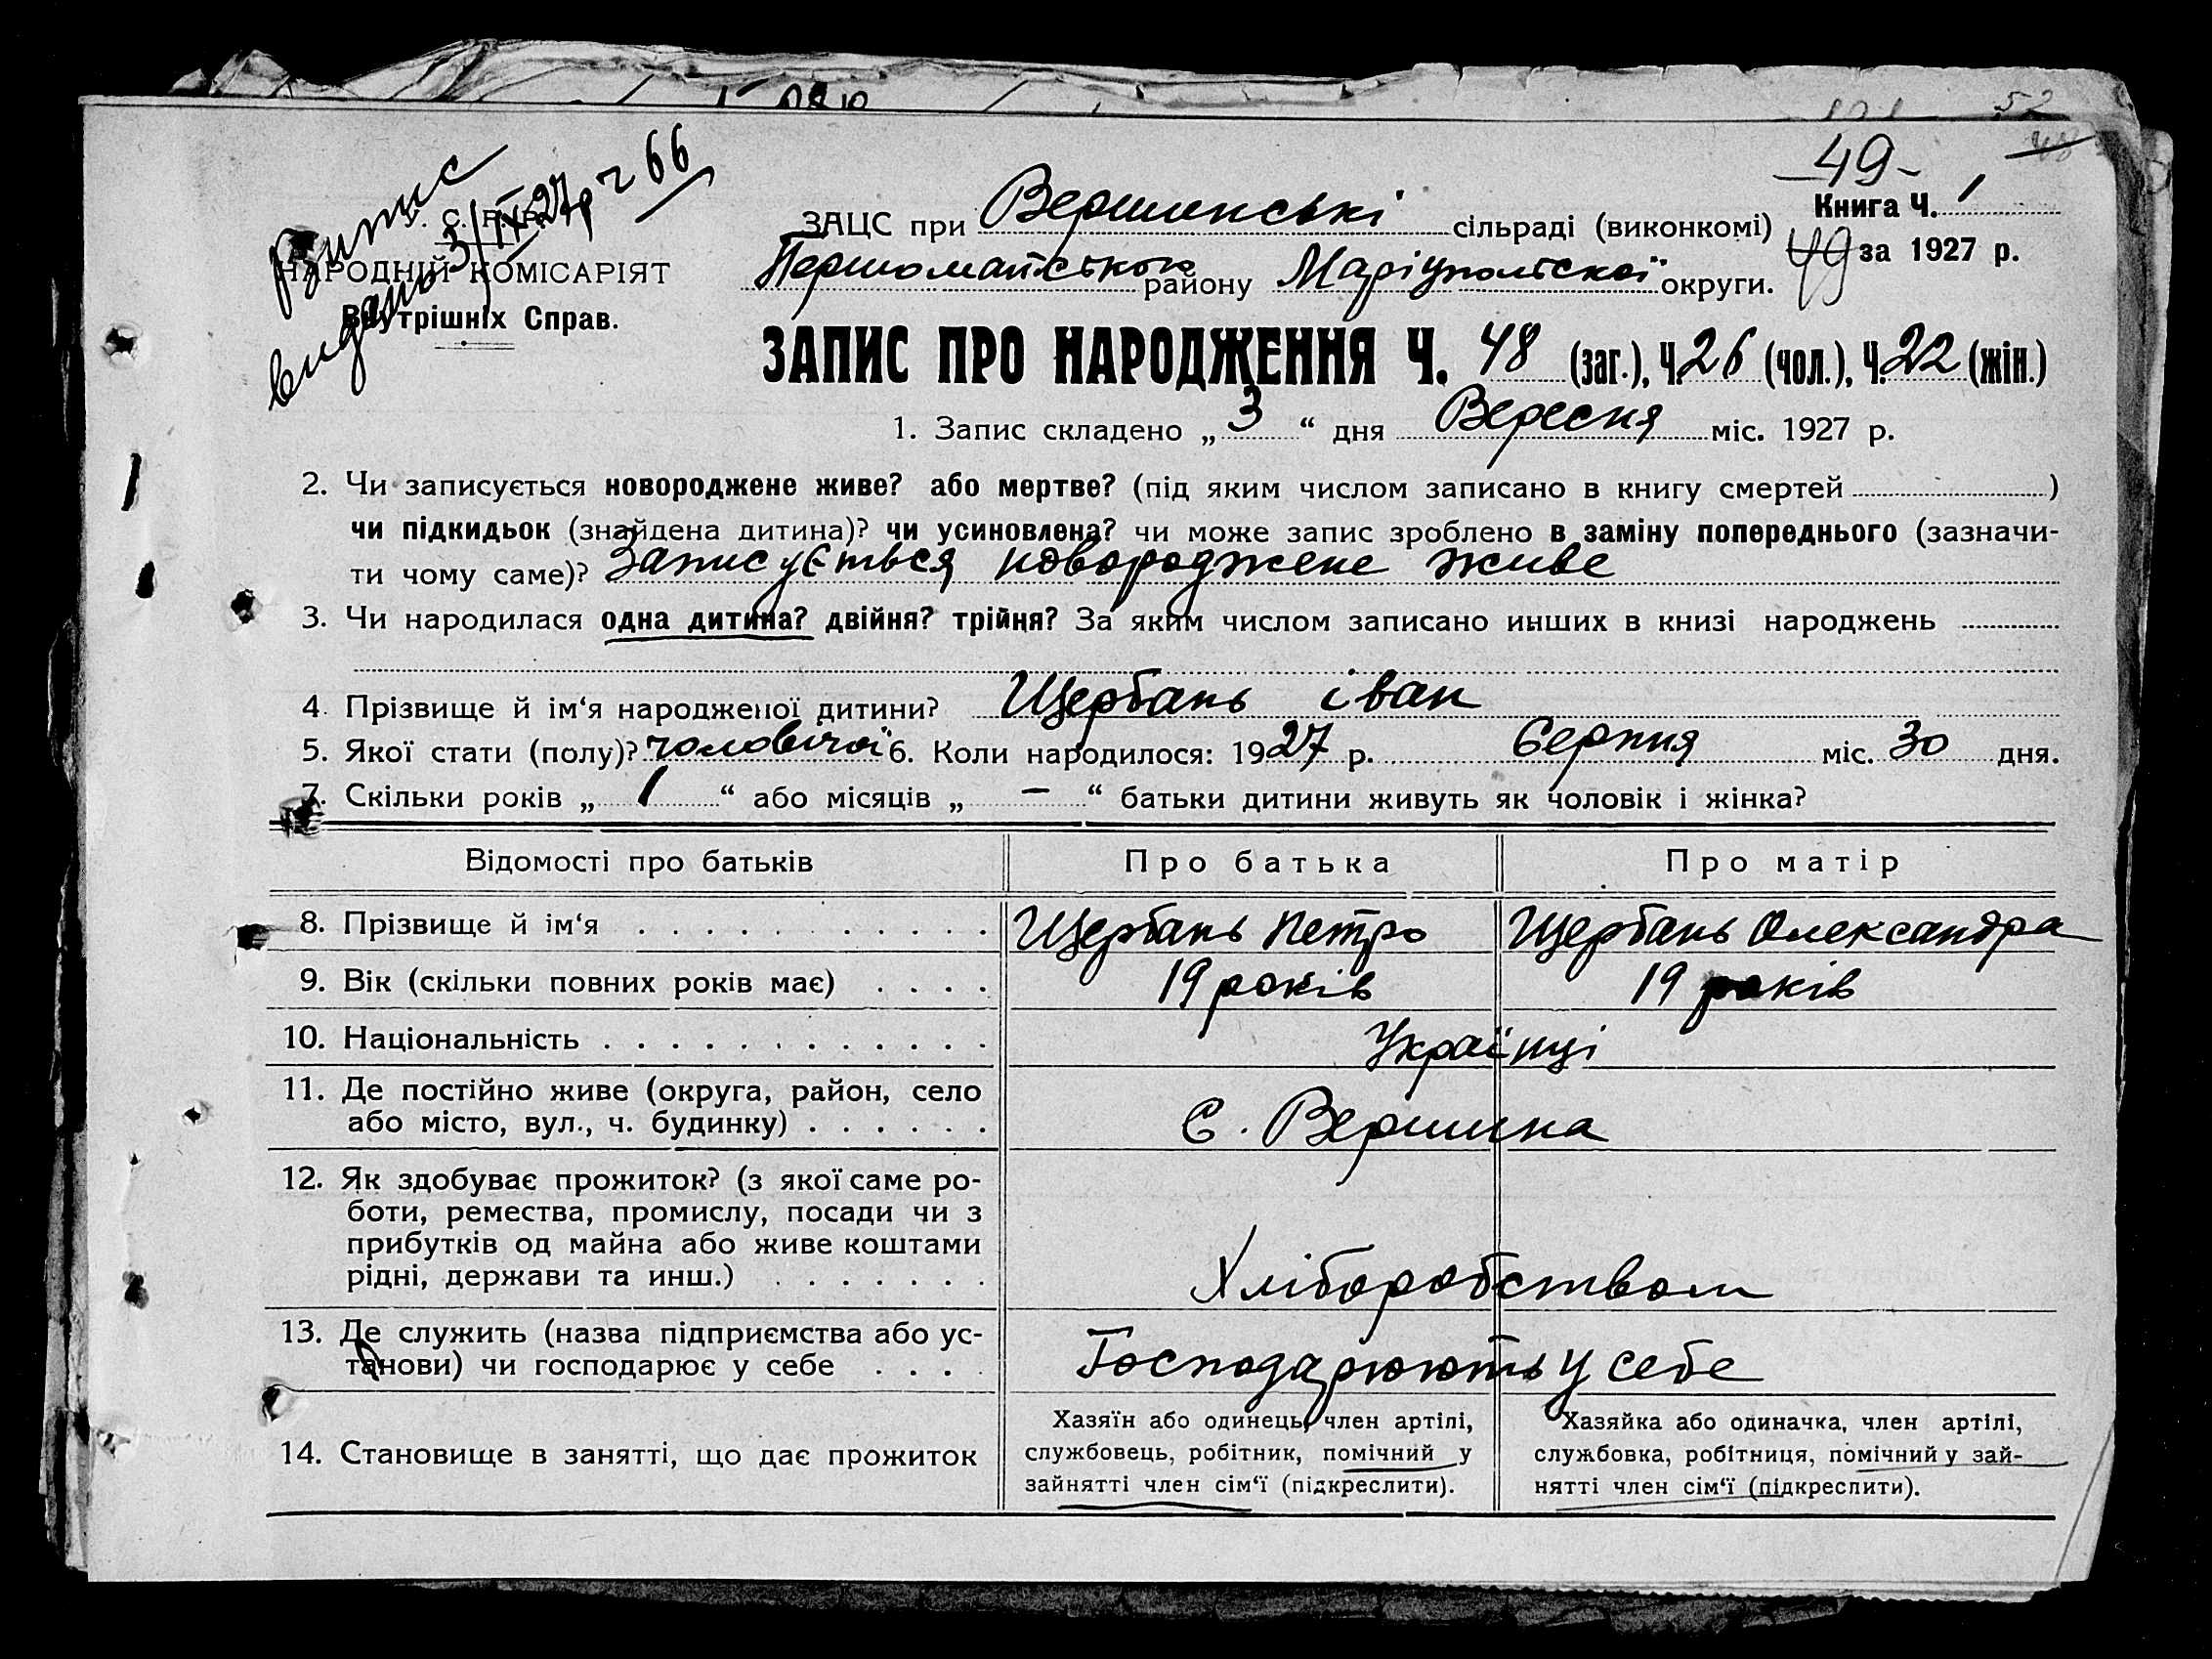 52
49-
Випис
видано 3/IX-27р ч 66
У. С. Р. Р.
НАРОДНІЙ КОМІСАРІЯТ
Внутрішніх Справ.
Книга Ч. 1
49 за 1927 р.
ЗАЦС при Вершинські сільраді (виконкомі)
Першомайського району Маріупольської округи.
ЗАПИС ПРО НАРОДЖЕННЯ Ч. 48 (заг.), Ч. 26 (чол.), Ч. 22 (жін.)
1. Запис складено „ 3 “ дня Вересня міс. 1927 р.
2. Чи записується новороджене живе? або мертве? (під яким числом записано в книгу смертей )
чи підкидьок (знайдена дитина)? чи усиновлена? чи може запис зроблено в заміну попереднього (зазначи-
ти чому саме)? Записується новороджене живе
3. Чи народилася одна дитина? двійня? трійня? За яким числом записано инших в книзі народжень
4. Прізвище й ім‘я народженої дитини? Щербань іван
5. Якої стати (полу)? чоловічої 6. Коли народилося: 1927 р. Серпня міс. 30 дня.
7. Скільки років „ 1 “ або місяців „ – “ батьки дитини живуть як чоловік і жінка?
Відомості про батьків Про батька Про матір
8. Прізвище й ім‘я Щербань Петро Щербань Олександра
9. Вік (скільки повних років має) 19 років 19 років
10. Національність Українці
11. Де постійно живе (округа, район, село
або місто, вул., ч. будинку) С. Вершина
12. Як здобуває прожиток? (з якої саме ро-
боти, ремества, промислу, посади чи з
прибутків од майна або живе коштами
рідні, держави та инш.) Хліборобством
13. Де служить (назва підприємства або ус-
танови) чи господарює у себе Господарюють у себе
14. Становище в занятті, що дає прожиток
Хазяїн або одинець, член артілі,
службовець, робітник, помічний у
зайнятті член сім‘ї (підкреслити).
Хазяйка або одиначка, член артілі,
службовка, робітниця, помічний у зай-
нятті член сім‘ї (підкреслити).